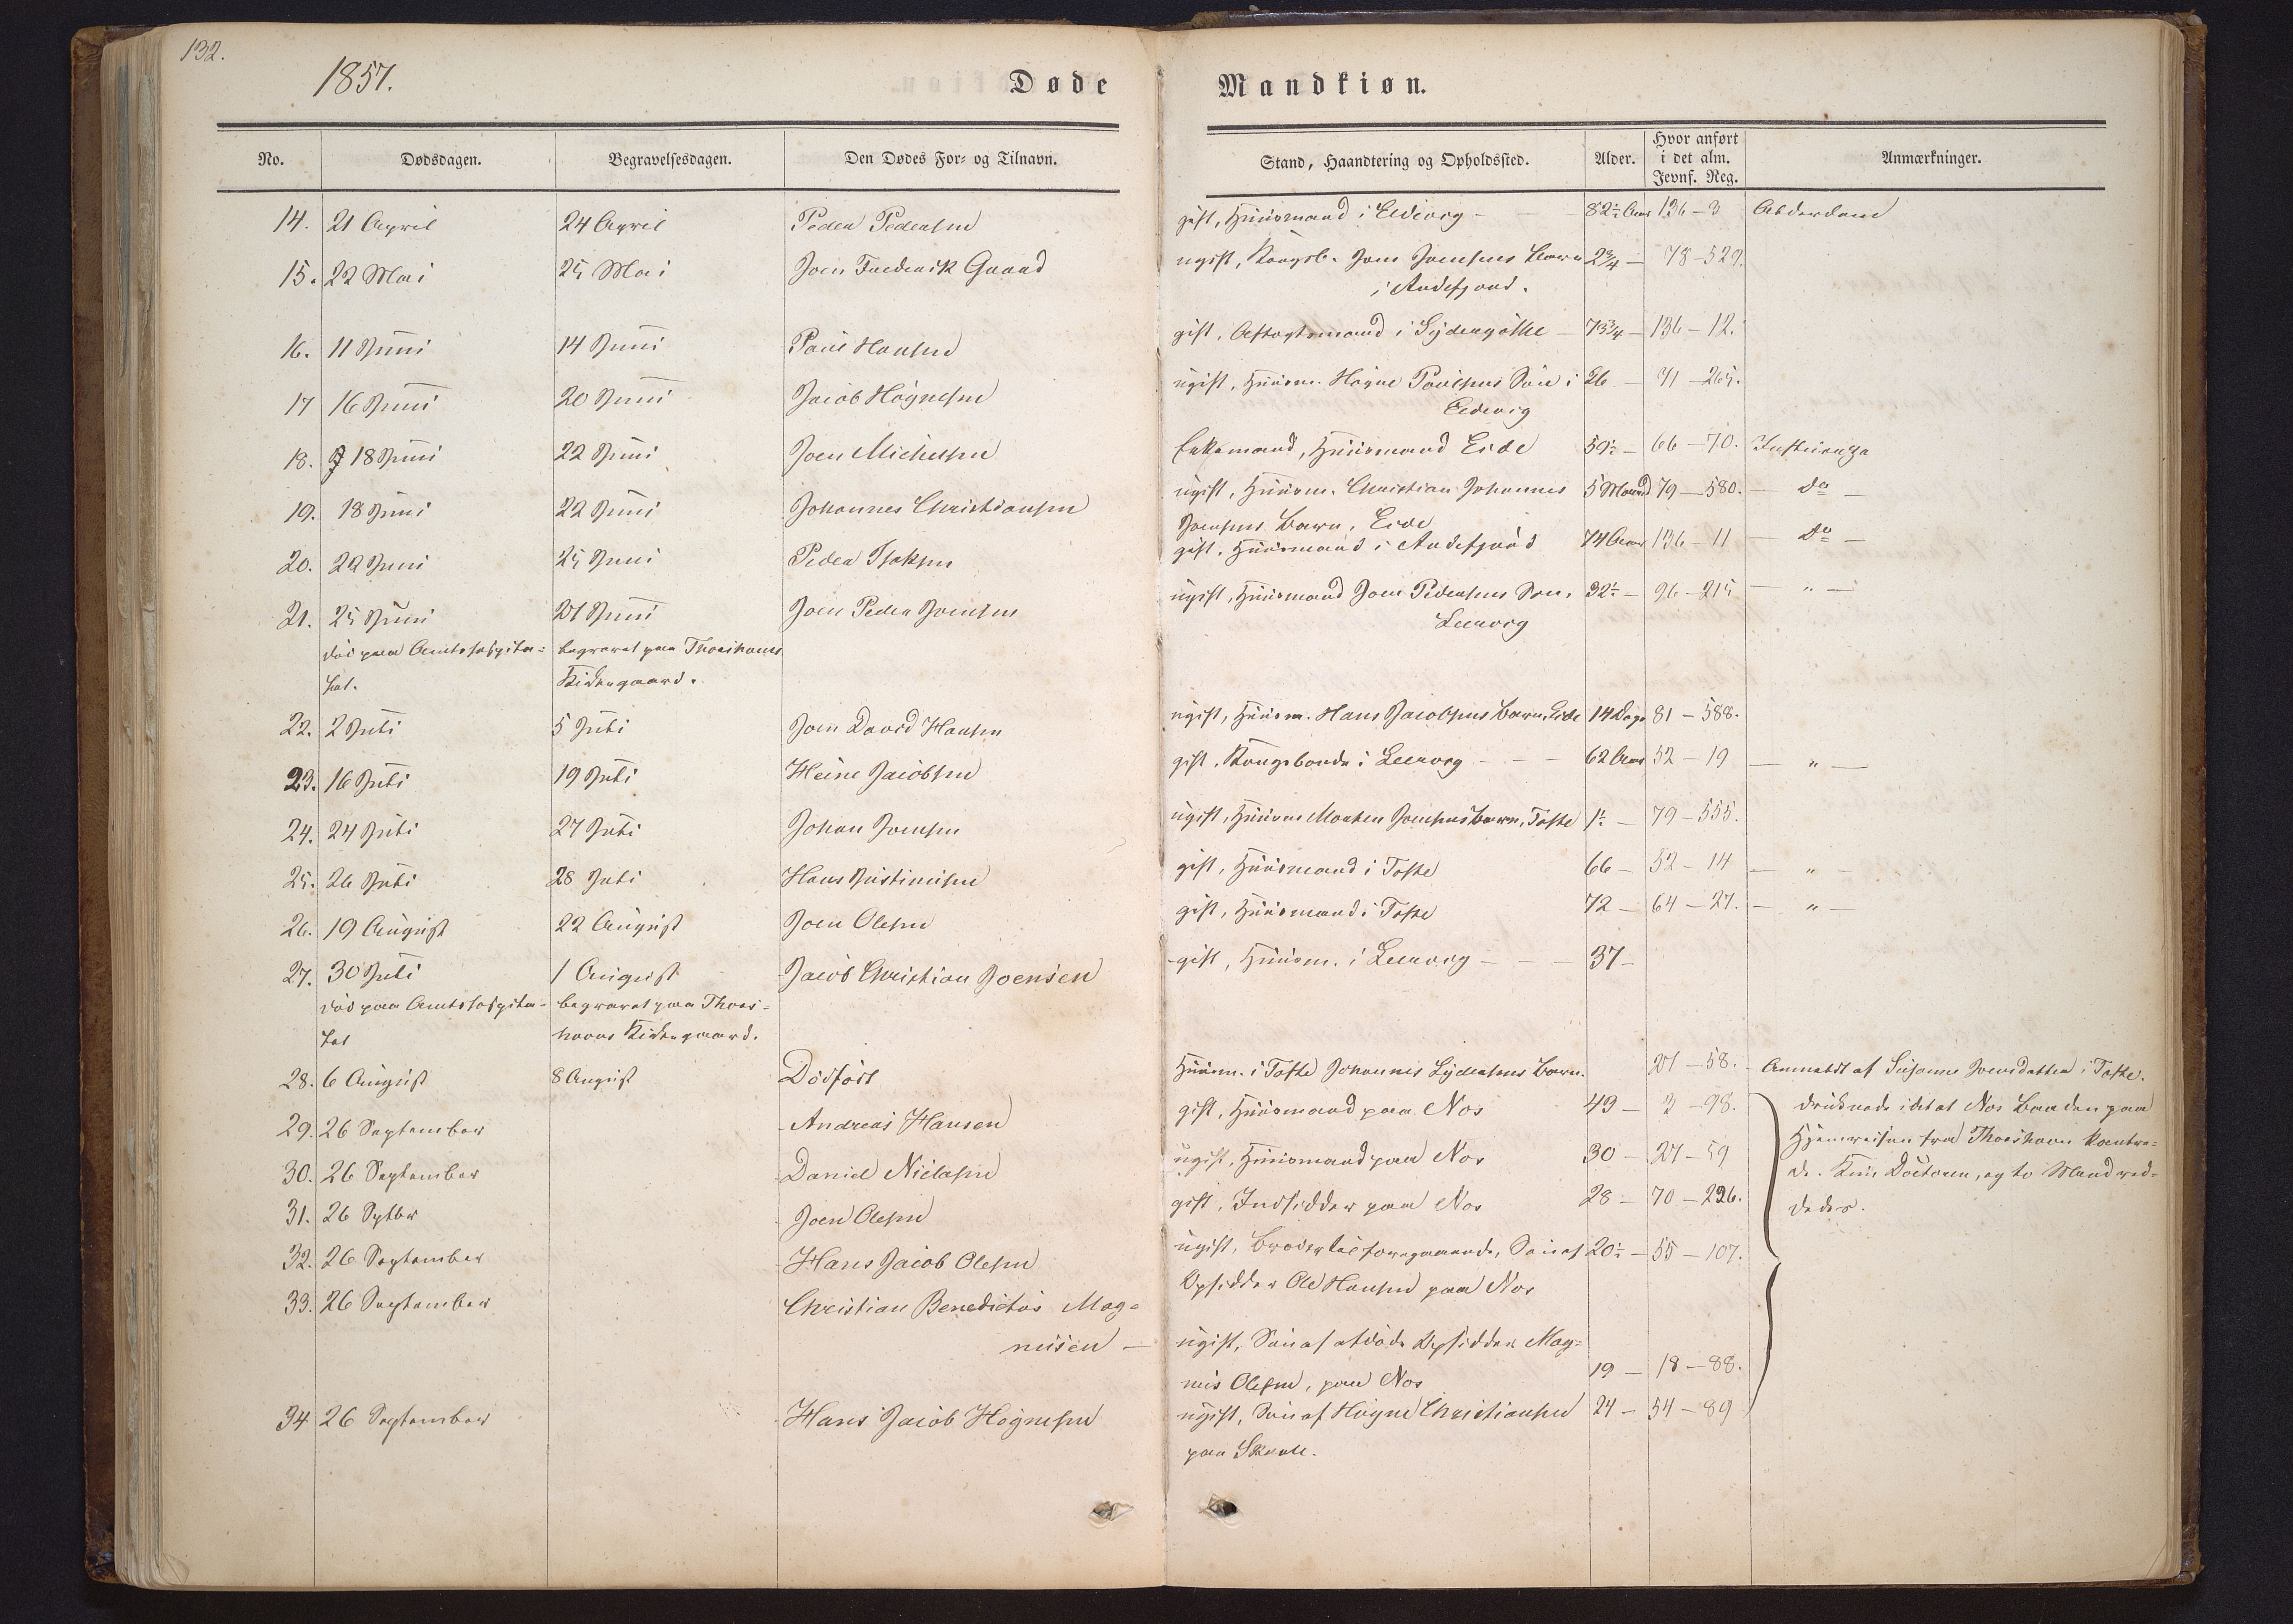 132.
1857.
Døde Mandkiøn.
No. Dødsdagen. Begravelsesdagen. Den Dødes For- og Tilnavn. Stand, Haandtering og Opholdssted. Alder. Hvor anført i det alm. Jevnf. Reg. Anmærkninger.
14. 21 April 24 April Peder Pedersen gift, Huusmand i Eldevig - - 82½ Aar 136-3 Alderdom
15. 22 Mai 25 Mai Joen Frederik Gaard ugift, Kongsb. Joen Joensens Barn 2¾ - 78-529.
i Andefjord.
16. 11 Juni 14 Juni Poul Hansen gift, Aftægtsmand i Sydergøthe - 73¾ - 136-12.
17 16 Juni 20 Juni Jacob Høgnesen ugift, Huusm. Høgne Poulsens Søn i 26 - 71-265.
Eldevig
18. 18 Juni 22 Juni Joen Michelsen Enkemand, Huusmand Eide 59½ - 66-70. Influenza
19. 18 Juni 22 Juni Johannes Christiansen ugift, Huusm. Christian Johannes 5 Maaned 79-580. - do -
Joensens Barn, Eide
20. 22 Juni 25 Juni Peder Isaksen gift, Huusmand i Andefjord 74 Aar 136-11 - do -
21. 25 Juni 27 Juni Joen Peder Joensen ugift, Huusmand Joen Pedersens Søn, 32½ - 96-215 - " -
Leervig
død paa Amtshospita= begravet paa Thorshavns
let. Kirkegaard.
22. 2 Juli 5 Juli Joen David Hansen ugift, Huusm. Hans Jacobsens Barn, Eide 14 Dage 81-588.
23. 16 Juli 19 Juli Heine Jacobsen gift, Kongsbonde i Leervig - - - 62 Aar 52-19 - " -
24. 24 Juli 27 Juli Johan Joensen ugift, Huusm Morten Joensens Barn, Tofte 1½ - 79-555.
25. 26 Juli 28 Juli Hans Justinisen gift, Huusmand i Tofte 66 - 52-14 - " -
26. 19 August 22 August Joen Olesen gift, Huusmand i Tofte 72 - 64-27. - " -
27. 30 Juli 1 August Jacob Christian Joensen gift, Huusm. i Leervig - - - 37 -
død paa Amtshospita= begravet paa Thors=
let havns Kirkegaard.
28. 6 August 8 August Dødfødt Huusm. i Tofte Johannes Lydersens Barn. 27-58. Anmeldt af Susanne Joensdatter i Tofte.
29. 26 September Andreas Hansen gift, Huusmand paa Nos 49 - 2-98. druknede idet at Nos Baaden paa
Hjemreisen fra Thorshavn kantre=
30. 26 September Daniel Nielsen ugift, Huusmand paa Nos 30 - 27-59 de. Kun Doctoren, og to Mand red=
31. 26 Septbr Joen Olesen gift, Indsidder paa Nos 28 - 70-226. dedes.
32. 26 September Hans Jacob Olesen ugift, Broder til foregaaende, Søn af 20½ - 55-107.
Opsidder Ole Hansen paa Nos
33. 26 September Christian Benedictus Mag=
nusen - ugift, Søn af afdøde Opsidder Mag=
nus Olesen, paa Nos 19 - 18-88.
34 26 September Hans Jacob Høgnesen ugift, Søn af Høgne Christiansen 24 - 54-89
paa Skaale.